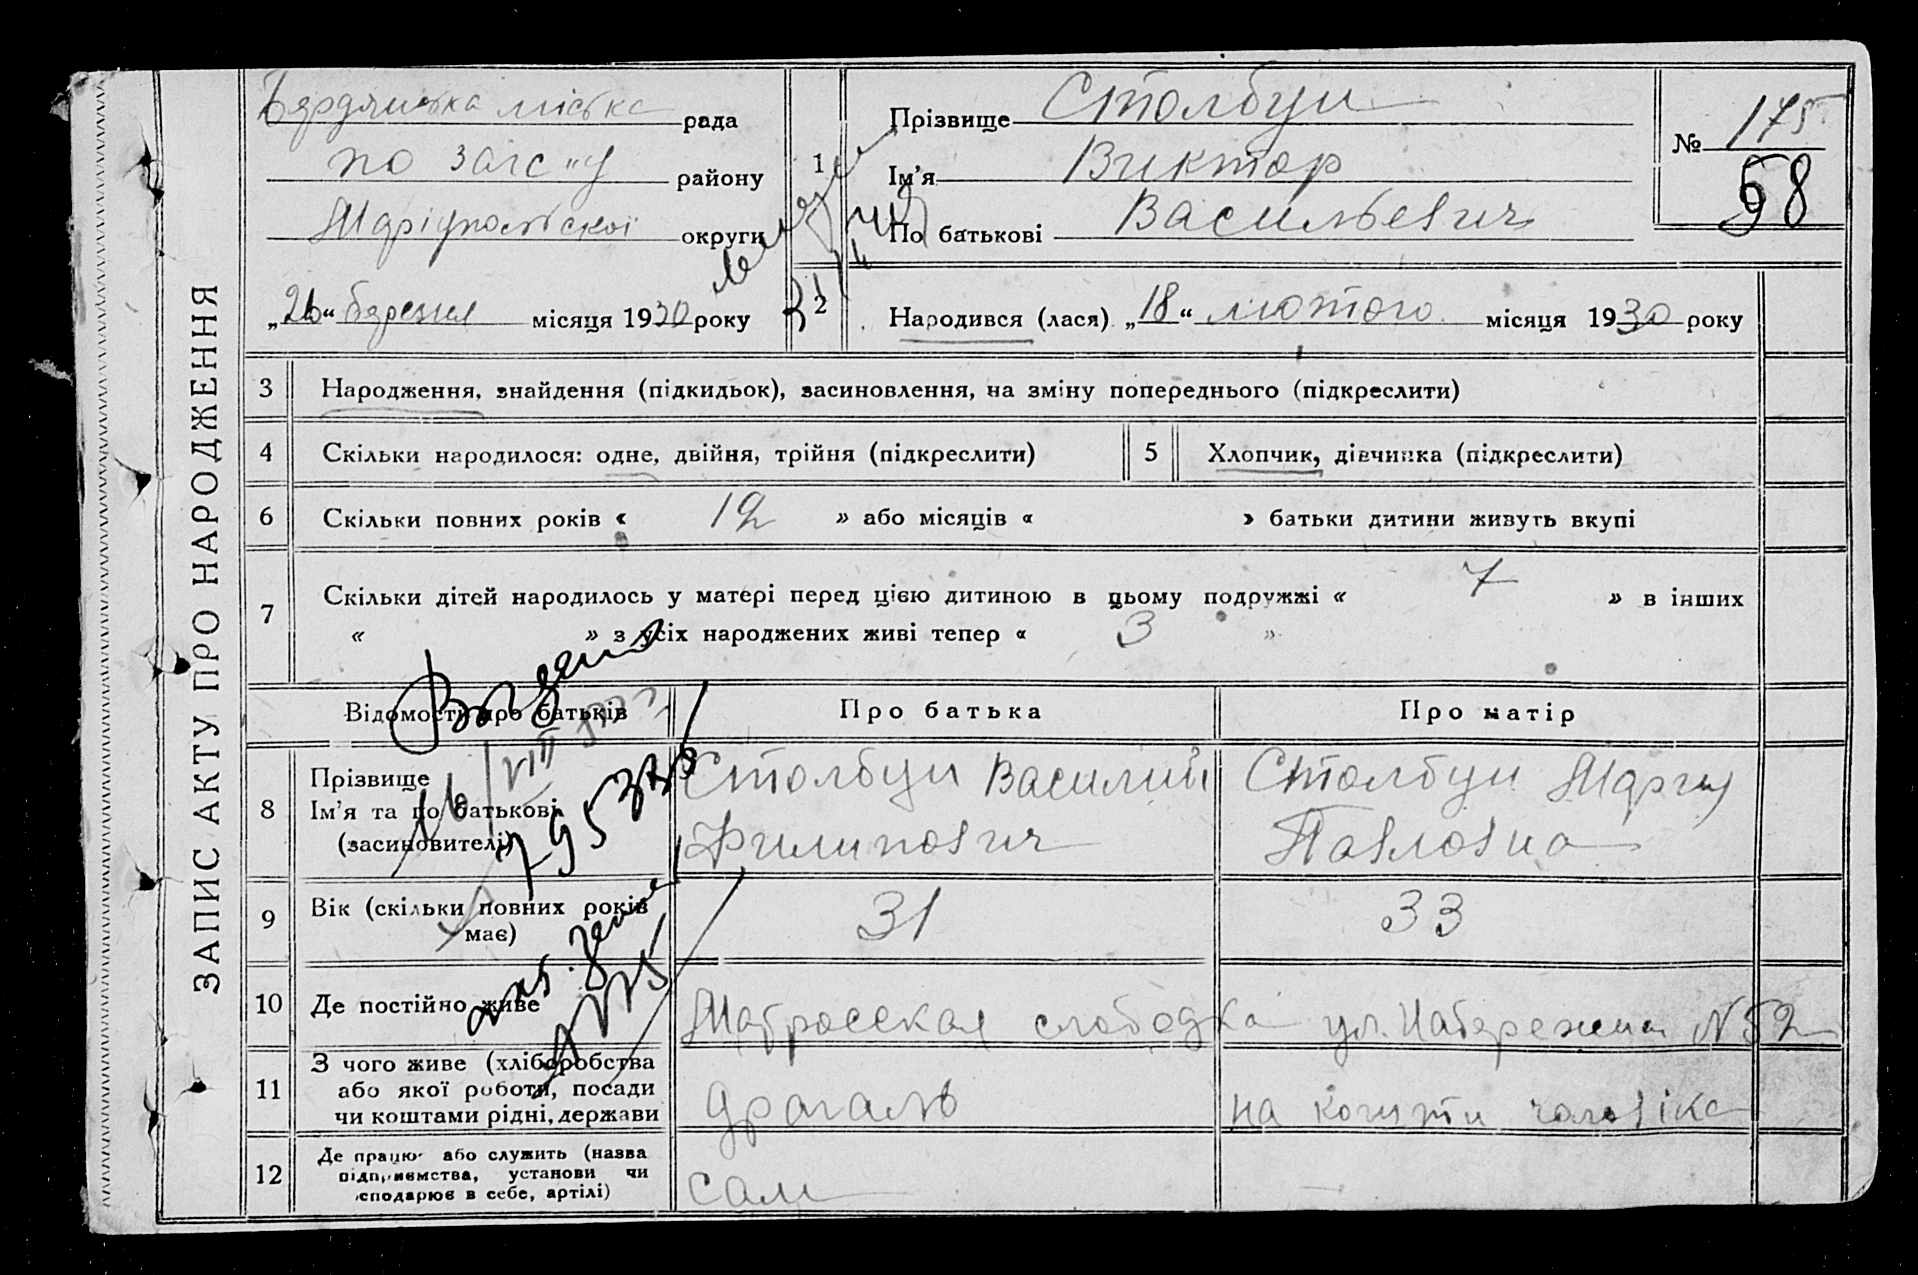 ЗАПИС АКТУ ПРО НАРОДЖЕННЯ
Бердянська міська рада
по загс"у району
Маріупольскої округи
„26“ березня місяця 1930 року
1
Прізвище Столбун
Ім'я Виктор
По батькові Васильевич
№ 175
58
2
Народився (лася) „18“ лютого місяця 1930 року
3 Народження, знайдення (підкидьок), засиновлення, на зміну попереднього (підкреслити)
4 Скільки народилося: одне, двійня, трійня (підкреслити) 5 Хлопчик, дівчинка (підкреслити)
6 Скільки повних років « 12 » або місяців « » батьки дитини живуть вкупі
7 Скільки дітей народилось у матері перед цією дитиною в цьому подружжі « 7 » в інших
« » з усіх народжених живі тепер « 3 »
Відомости про батьків Про батька Про матір
8 Прізвище
Ім'я та по батькові
(засиновителі)
Столбун Василий
Филипович
Столбун Мария
Павловна
9 Вік (скільки повних років
має)
31 33
10 Де постійно живе Матросская слободка ул. Набережная N 52
11 З чого живе (хліборобства
або якої роботи, посади
чи коштами рідні, держави
драгаль на кошти чоловіка
12 Де працює або служить (назва
підприємства, установи чи
сподарює в себе, артілі)
сам —